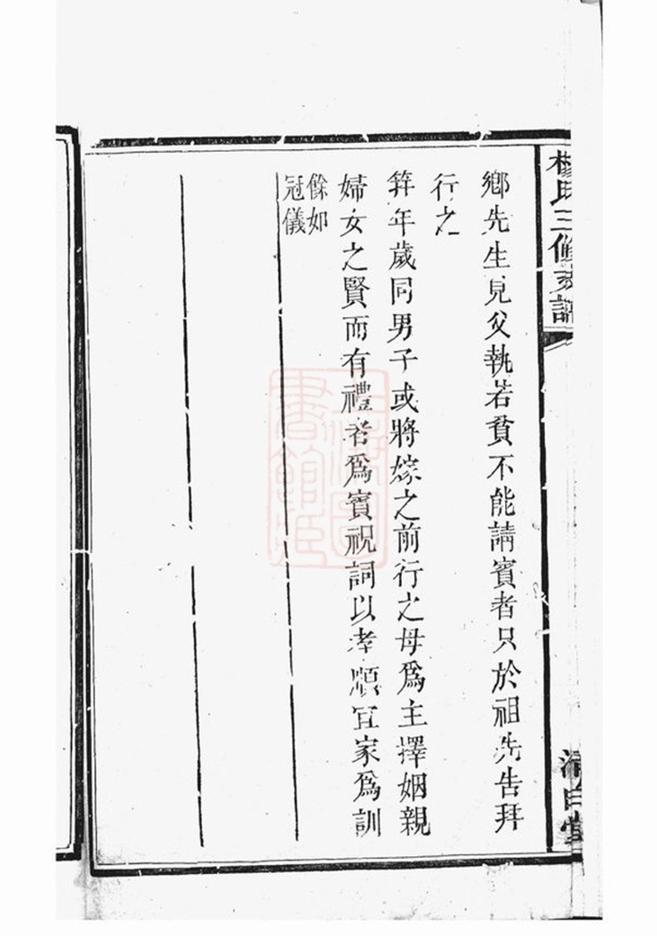 楊氏三修支譜
清白堂
鄉先生見父執若貧不能請賓者只於祖先告拜
行之
笄年歲同男子或將嫁之前行之母爲主擇姻親
婦女之賢而有禮者爲賓祝詞以孝順宜家爲訓
餘如
冠儀